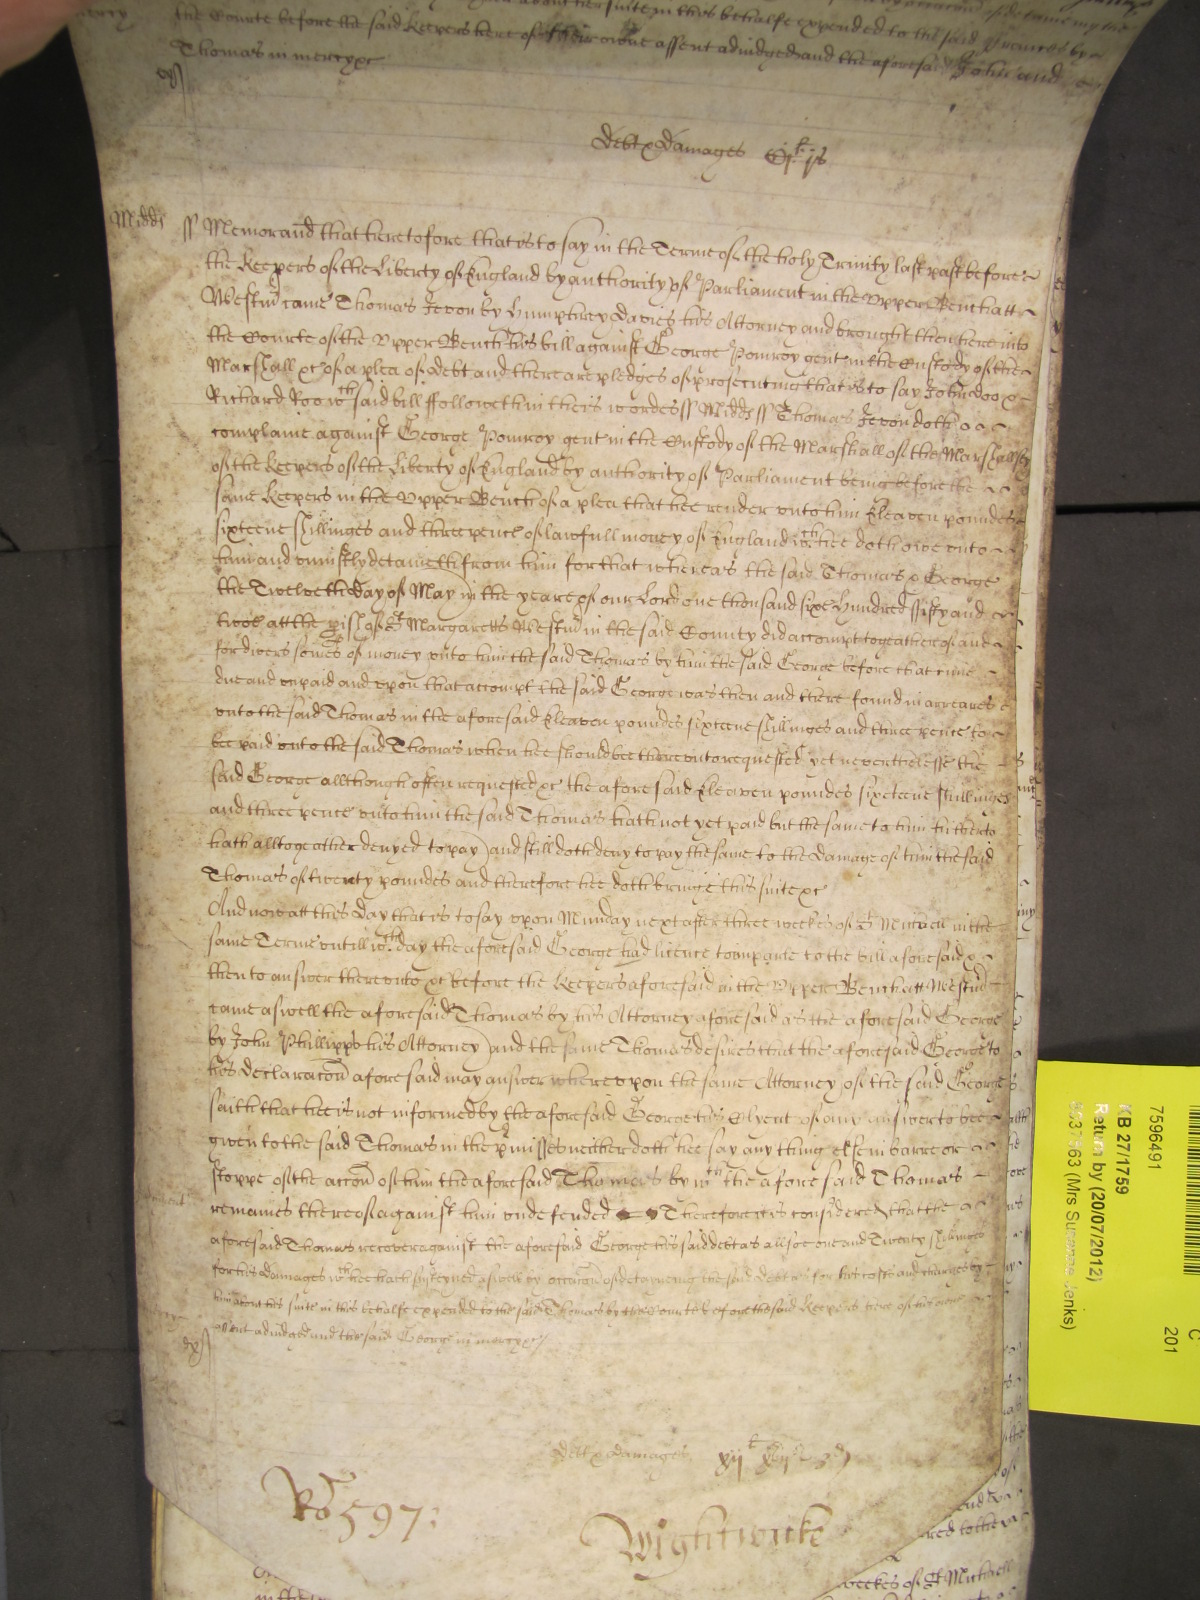 the Courte before the said Keepers here of their owne assent adiudged and the aforesaid John and
Thomas in mercy &c
debt & damages
Midds ss Memorand that heretofore that is to say in the Terme of the holy Trinity last past before
the Keepers of the Liberty of England by authority of Parliament in the Upper Bench att
Westmr came Thomas Jevon by Humphrey Davies his Attorney and brought then there into
the Courte of the Upper Bench his bill against George Pomroy gent in the Custody of the
Marshall &c of a plea of debt and there are pledges of prosecuting that is to say John doo &
Richard Roo wch said bill followeth in theis wordes ss Midds ss Thomas Jevon doth
complaine against George Pomroy gent in the Custody of the Marshall of the Marshallsey
of the Keepers of the Liberty of England by authority of Parliament being before the
same Keepers in the Upper Bench of a plea that hee render unto him Eleaven poundes
sixteene shillinges and three pence of lawfull money of England wch hee doth owe unto
him and uniustly detaineth from him for that whereas the said Thomas & George
the Twelveth day of May in the yeare of our Lord one thousand sixe hundred fifty and
twoe att the pish of St Margaretts Westmr in the said County did accompt togeather of and
for divers somes of money unto him the said Thomas by him the said George before that time
due and unpaid and upon that accompt the said George was then and there found in arreares
unto the said Thomas in the aforesaid Eleaven poundes sixteene shillinges and three pence to
bee paid unto the said Thomas when hee should bee thereunto requested yet neverthelesse the
said George allthough often requested &c the aforesaid Eleaven poundes sixteene shillinges
and three pence unto him the said Thomas hath not yet paid but the same to him hitherto
hath alltogeather denyed to pay and still doth deny to pay the same to the damage of him the said
Thomas of twenty poundes and therefore hee doth bringe this suite &c
And now att this day that is to say upon Munday next after three weekes of St Michaell in the
same Terme untill wch day the aforesaid George had licence to imparle to the bill aforesaid &
then to answer thereunto &c before the Keepers aforesaid in the Upper Bench att Westmr
came aswell the aforesaid Thomas by his Attorney aforesaid as the aforesaid George
by John Phillipps his Attorney and the same Thomas desires that the aforesaid George to
his declaracon aforesaid may answer whereupon the same Attorney of the said George
saith that hee is not informed by the aforesaid George his Clyent of any answer to bee
given to the said Thomas in the pmisses neither doth hee say any thing else in barre or
stoppe of the accon of him the aforesaid Thomas by wch the aforesaid Thomas
remaines thereof against him undefended Therefore it is considered that the
aforesaid Thomas recover against the aforesaid George his said debt as allsoe one and Twenty shillinges
for his damages wch hee hath susteyned aswell by occacon of deteyneing the said debt as for his costs and charges by
him about his suite in this behalfe expended to the said Thomas by the Courte before the said Keepers here of his owne
assent adiudged and the said George in mercy &c
debt & damages xijl xvijs 3d
Ro 597:
Wightwicke
weekes of St Michaell
7596491
KB 27/1759
Return by (20/07/2012)
C
201